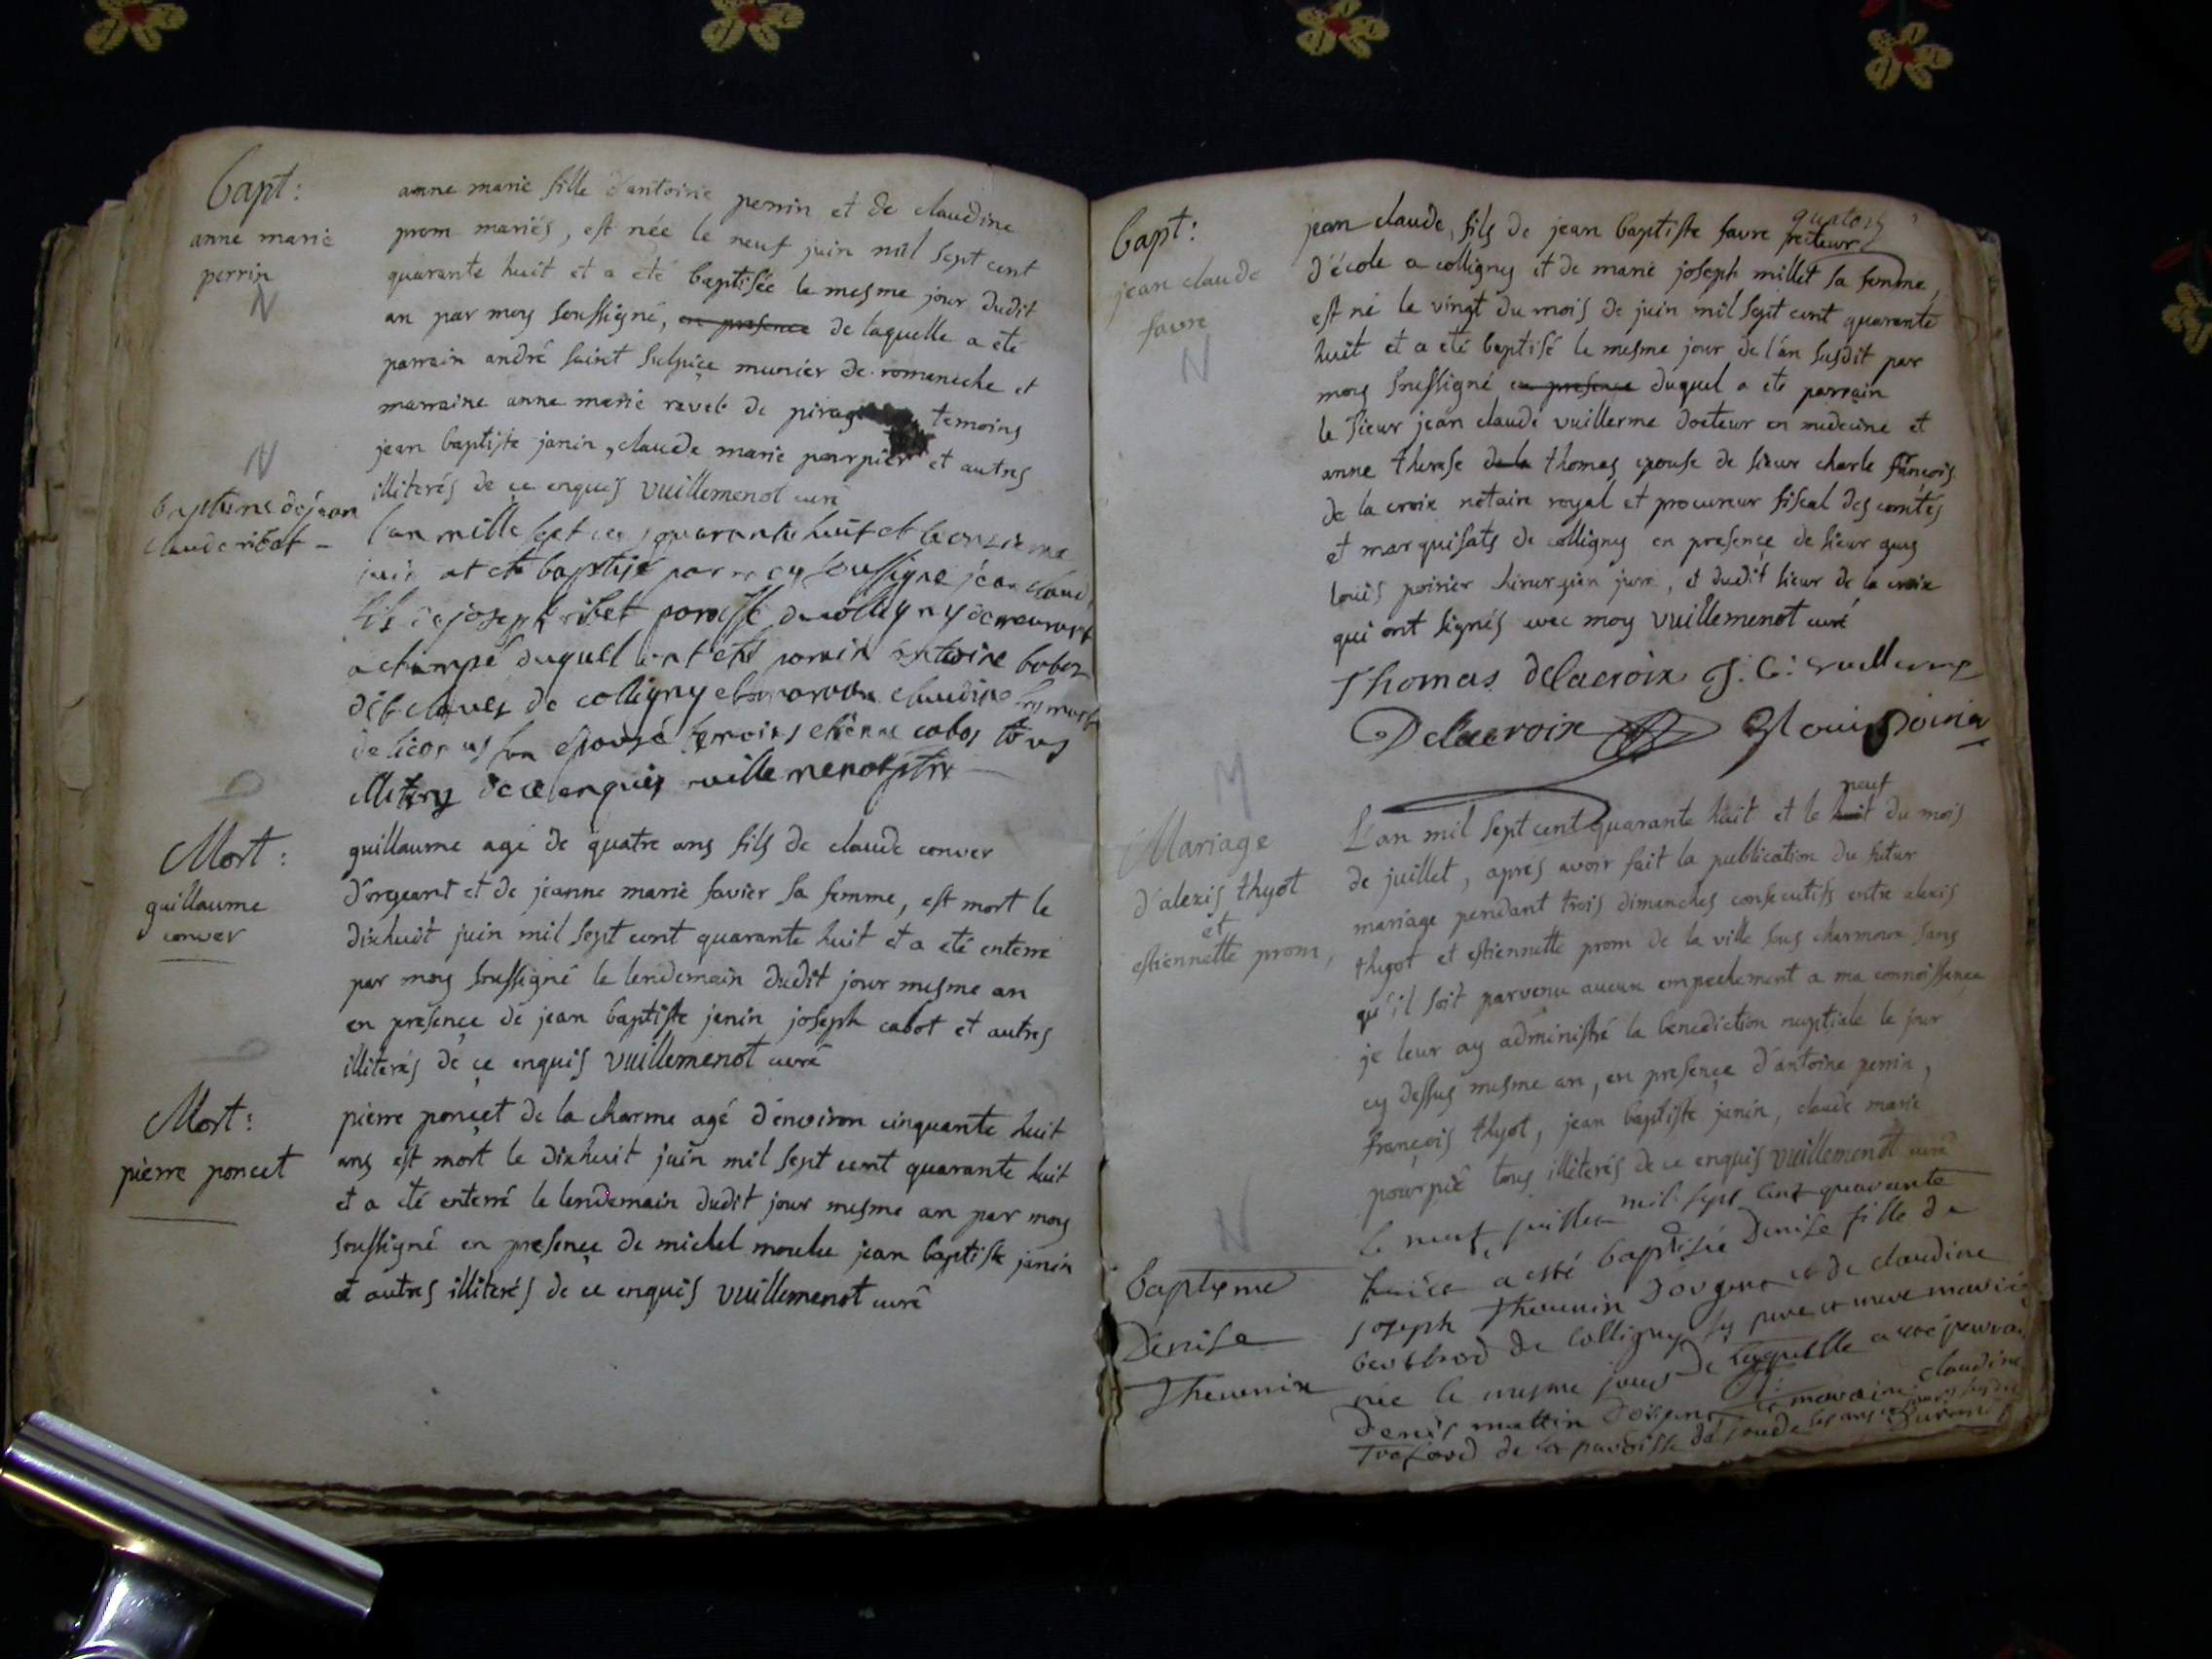 bapt:
anne marie
perrin
N
anne marie fille d'antoine perrin et de claudine
prom mariés, est née le neuf juin mil sept cent
quarante huit et a eté baptisée le mesme jour dudit
an par moy soussigné, en presence de laquelle a eté
parrain andré saint sulpice munier de romaneche et
marraine anne marie ravet de temoins
jean baptiste janin, claude marie pourpier et autres
illiterés de ce enquis vuillemenot curé
N
bapteme de jean
claude ribet
l'an mille sept cent quarante huit et le onzieme
juin at eté baptisé par moy soussigné jean claude
fils de joseph ribet paroisse de colligny demeurant
a duquel ont eté parain antoine
de colligny et maraine claudine
son epouse temoins etienne cabos tous
de ce enquis vuillemenot ptre
Mort:
guillaume
conver
guillaume agé de quatre ans fils de claude conver
d'orgeant et de jeanne marie favier sa femme, est mort le
dixhuit juin mil sept cent quarante huit et a eté enterré
par moy soussigné le lendemain dudit jour mesme an
en presence de jean baptiste janin joseph cabot et autres
illiterés de ce enquis vuillemenot curé
Mort:
pierre poncet
pierre poncet de la charme agé d'environ cinquante huit
ans est mort le dixhuit juin mil sept cent quarante huit
et a eté enterré le lendemain dudit jour mesme an par moy
soussigné en presence de michel moulu jean baptiste janin
et autres illiterés de ce enquis vuillemenot curé
bapt:
jean claude
favre
N
jean claude, fils de jean baptiste favre recteur
d'école a colligny et de marie joseph millet sa femme,
est né le vingt du mois de juin mil sept cent quarante
huit et a eté baptisé le mesme jour de l'an susdit par
moy soussigné en presence duquel a eté parrain
le sieur jean claude vuillerme docteur en medecine et
anne therese de la thomas epouse de sieur charle francois
de la croix notaire royal et procureur fiscal des comtés
et marquisats de colligny en presence de sieur guy
louis poirier chirurgien juré, et dudit sieur de la croix
qui ont signés avec moy vuillemenot curé
Thomas delacroix J. C: vuillerme
Delacroix Glouis Poirier
M
Mariage
d'alexis thyot
et
estiennette prom,
neuf
L'an mil sept cent quarante huit et le huit du mois
de juillet, apres avoir fait la publication du futur
mariage pendant trois dimanches consecutifs entre alexis
thyot et estiennette prom de la ville sous charmoux sans
qu'il soit parvenu aucun empechement a ma connoissance
je leur ay administré la benediction nuptiale le jour
cy dessus mesme an, en presence d'antoine perrin,
françois thyot, jean baptiste janin, claude marie
pourpié tous illiterés de ce enquis vuillemenot curé
N
baptyme
Denise
Thevenin
le neuf juillet mil sept cent quarante
huict a esté baptisée Denise fille de
joseph Thevenin et de claudine
de Colligny ses pere et mere mariés
née le mesme jour de laquelle a esté parrain
denis mattin et maraine claudine
de la paroisse de